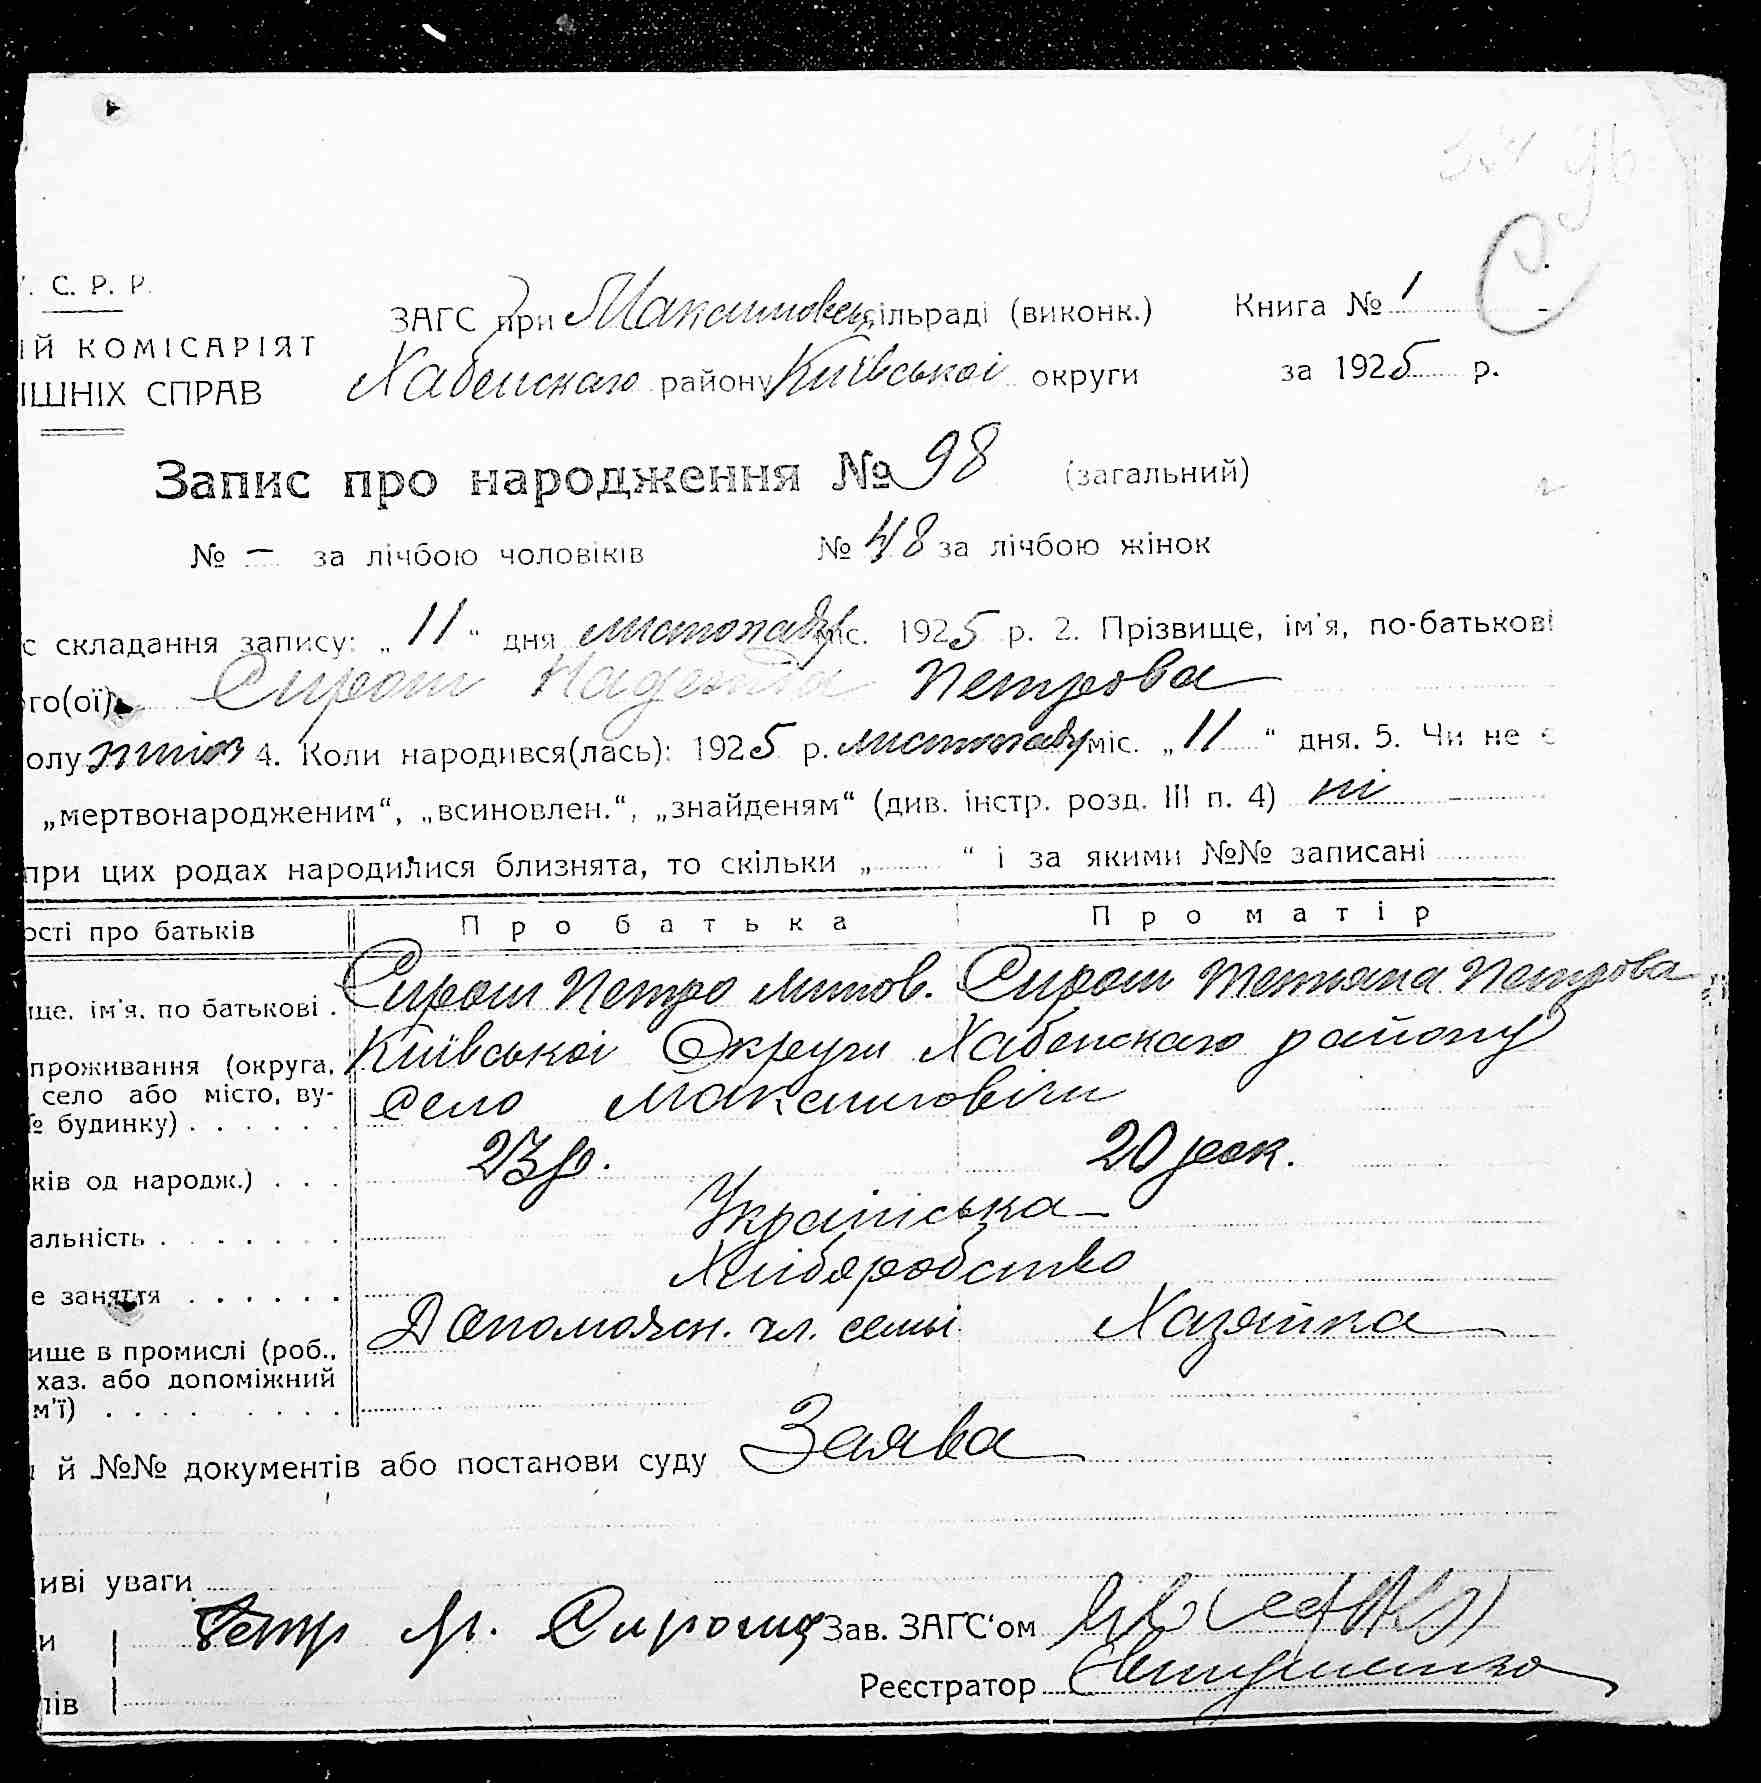 . С. Р. Р.
ІЙ КОМІСАРІЯТ
ІШНІХ СПРАВ
ЗАГС при Максимовец. сільраді (виконк.)
Хабенскаго району Київської округи
Книга № 1
за 1925 р.
С
Запис про народження № 98 (загальний)
№ — за лічбою чоловіків № 48 за лічбою жінок
с складання запису: „11“ дня листопаду міс. 1925 р. 2. Прізвище, ім'я, по-батькові
го(ої) Сирош Надежда Петрова
олу жиноч 4. Коли народився(лась): 1925 р. листопаду міс. „11“ дня. 5. Чи не є
„мертвонародженим“, „всиновлен.“, „знайденям“ (див. інстр. розд. III п. 4) ні
при цих родах народилися близнята, то скільки „ “ і за якими №№ записані
ості про батьків Про батька Про матір
ще, ім'я, по батькові . Сирош Петро Сирош Тетяна Петрова
проживання (округа, село або місто, ву-
№ будинку) . . . . . .
Київської Округи Хабенскаго району
село Максимовичи
ків од народж.) . . . 23 р. 20 рок.
альність . . . . . . . Українська
е заняття . . . . . . Хлиборобство
ище в промислі (роб.,
хаз. або допоміжний
м'ї) . . . . . . . . .
Допоможн. чл. семьі Хазяйка
й №№ документів або постанови суду Заява
иві уваги
и Петр Сирош Зав. ЗАГС'ом
Реєстратор
лів